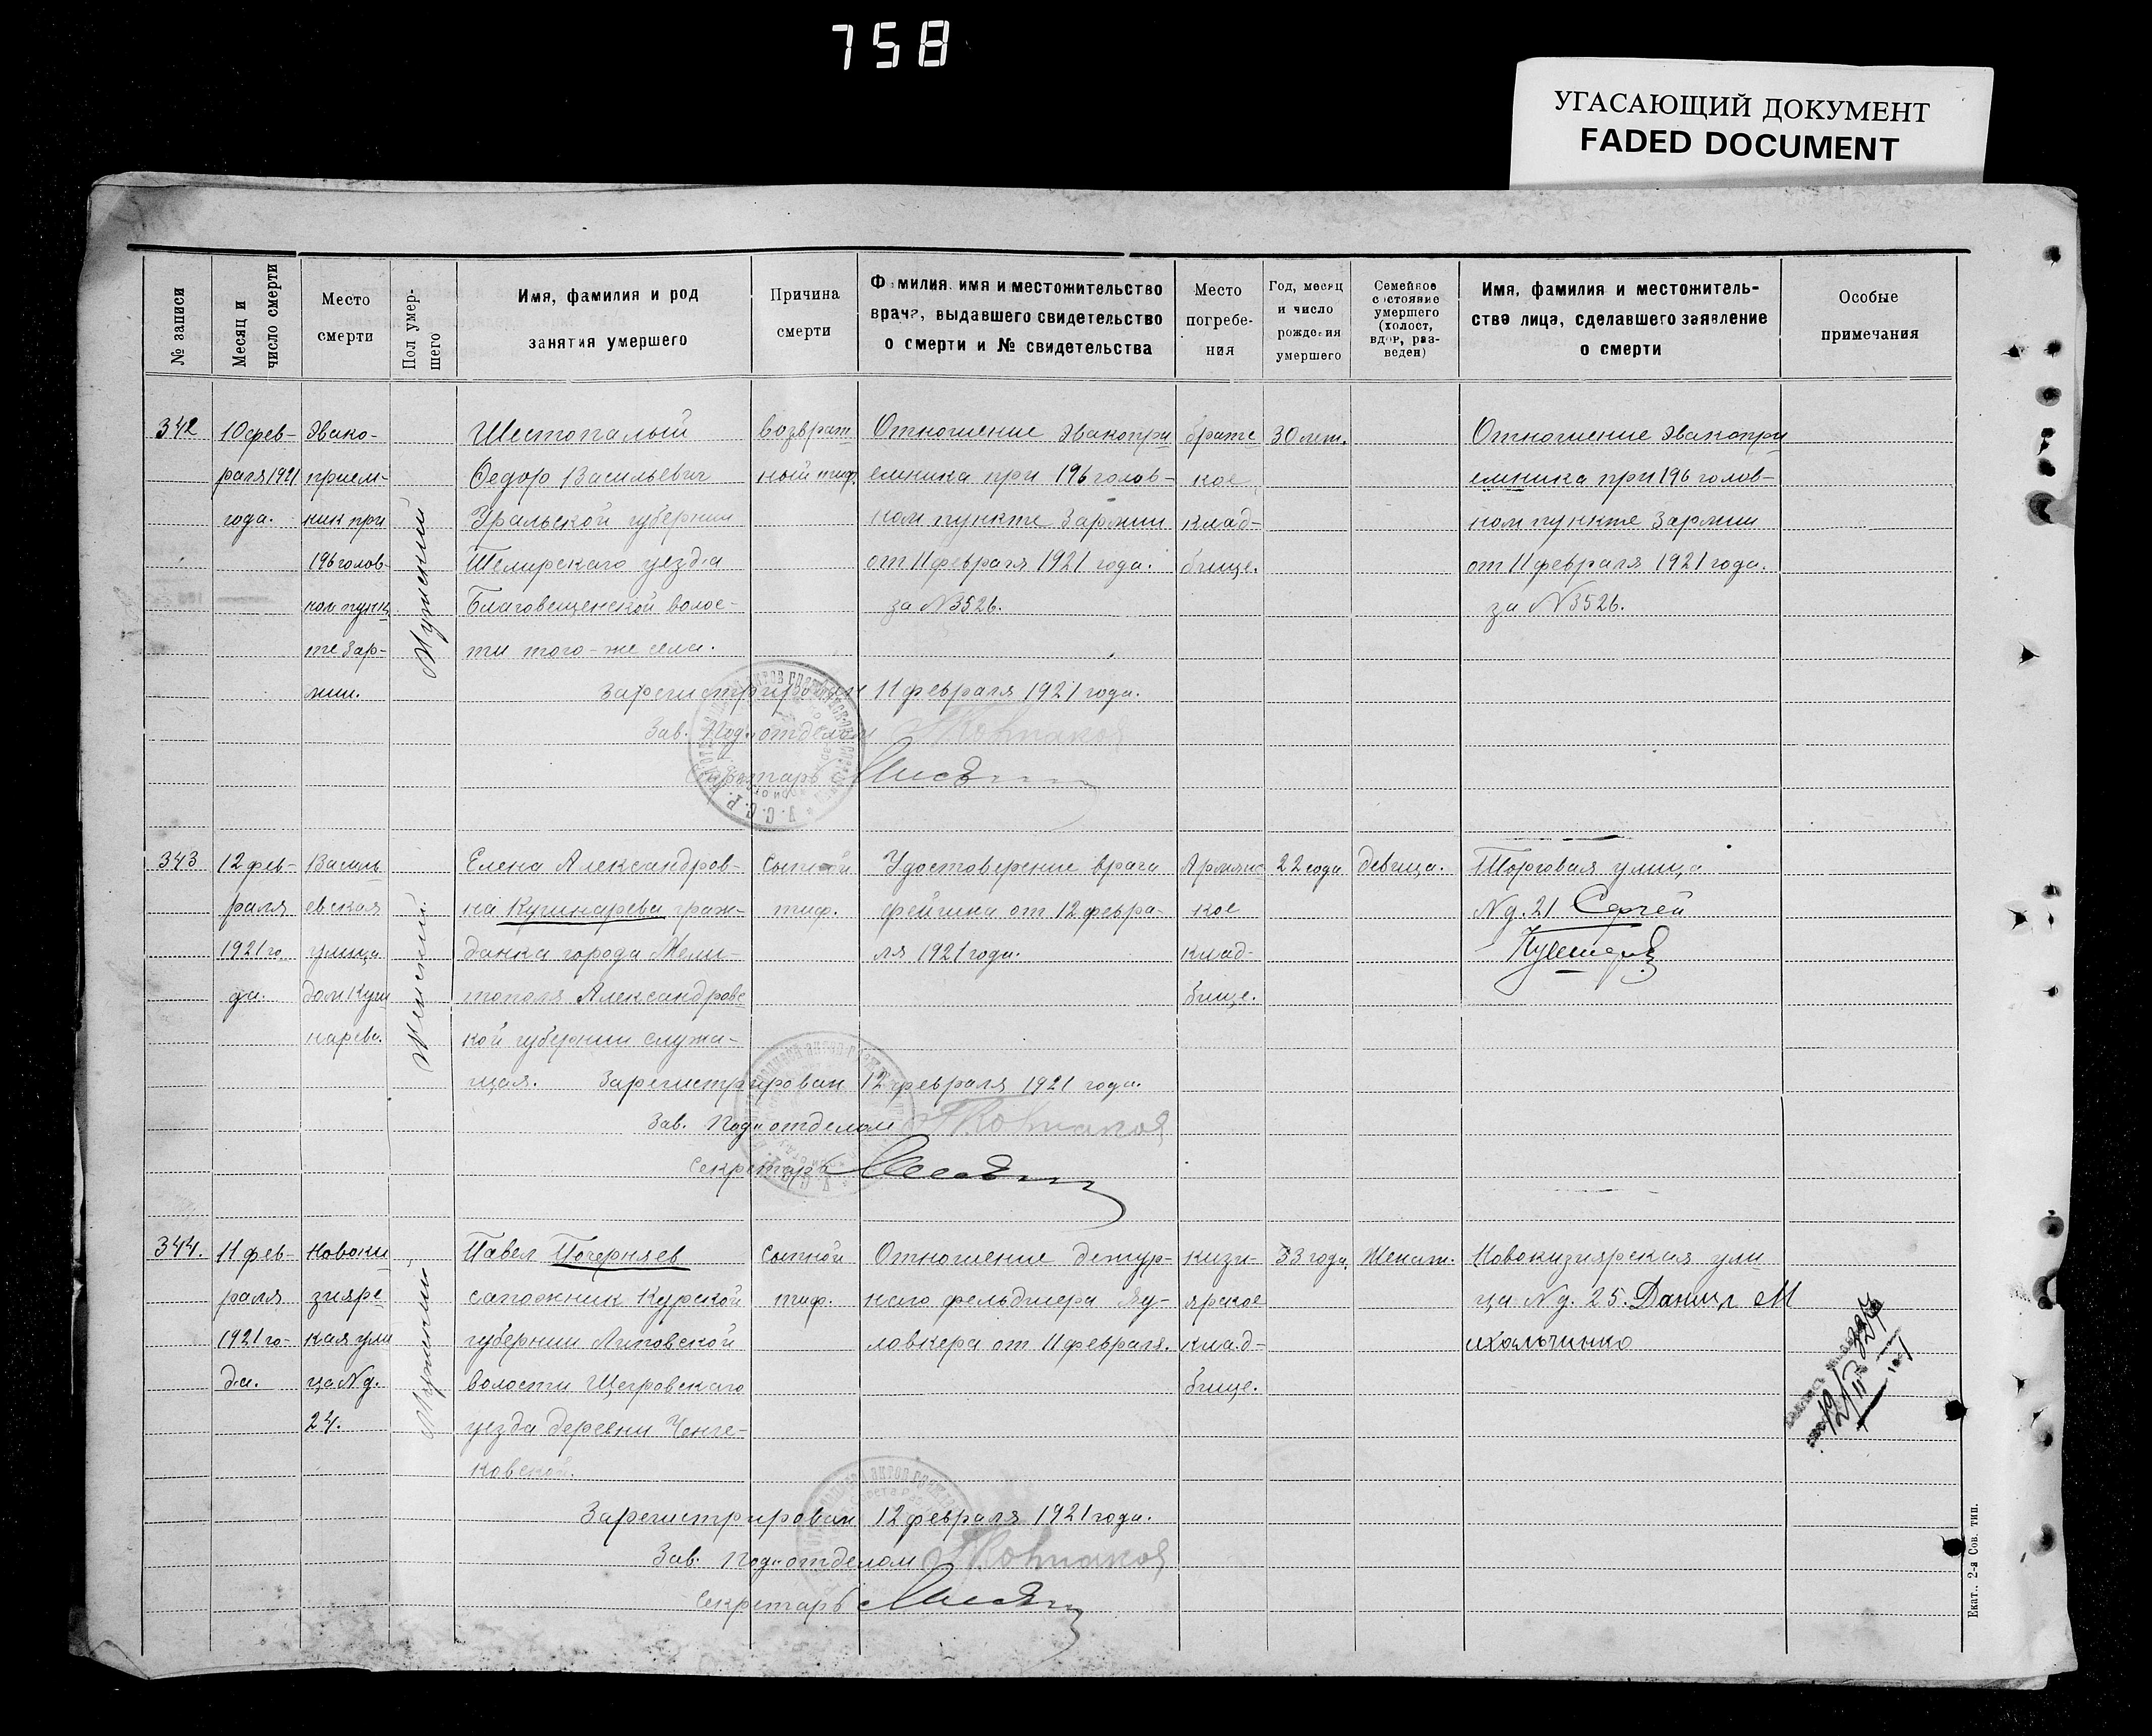 758
УГАСАЮЩИЙ ДОКУМЕНТ
FADED DOCUMENT
№ записи
Месяц и
число смерти
Место
смерти
Пол умер-
шего
Имя, фамилия и род
занятия умершего
Причина
смерти
Фамилия имя и местожительство
врача, выдавшего свидетельство
о смерти и № свидетельства
Место
погребе-
ния
Год, месяц
и число
рождения
умершего
Семейное
состояние
умершего
(холост,
вдов, раз-
веден)
Имя, фамилия и местожитель-
ство лица, сделавшего заявление
о смерти
Особые
примечания
342
10 фев-
раля 1921
года.
Эвако-
прием-
ник при
196 голов-
ном пунк
те 3 ар-
мии.
Мужской
Шестопалый
Федор Васильевич
Уральской губернии
Темирскаго уезда
Благовещенской волос-
ти того-же села.
возврат
ный тиф.
Отношение эвакопри
емника при 196 голов-
ном пункте 3 армии
от 11 февраля 1921 года.
за №3526.
братс
кое
клад-
бище.
30 лет.
Отношение эвакопри
емника при 196 голов-
ном пункте 3 армии
от 11 февраля 1921 года.
за №3526.
Зарегистрирован 11 февраля 1921 года.
Зав. Под отделом
Секретарь
343
12 фев-
раля
1921 го
да.
Василь
евская
улица
дом Куши
нарева.
Женский.
Елена Александров-
на Кушнарева граж-
данка города Мели-
тополя Александровс
кой губернии служа-
щая.
Сыпной
тиф.
Удостоверение врача
Фейгина от 12 февра-
ля 1921 года.
Армянс
кое
клад-
бище.
22 года
девица.
Торговая улица
№ д. 21 Сергей
Зарегистрирован 12 февраля 1921 года.
Зав. Под отделом
Секретарь
344.
11 фев-
раля
1921 го-
да.
Новоки
зиярс
кая ули
ца № д.
24.
Мужской
Павел Почерняев
сапожник Курской
губернии Липовской
волости Щегровскаго
уезда деревни Ченге-
ковской.
Сыпной
тиф.
Отношение дежур-
наго фельдшера
от 11 февраля.
кизи-
ярское
клад-
бище.
33 года
Женат.
Новокизиярская ули
ца № д. 25. Данил М
ихальчинко
Зарегистрирован 12 февраля 1921 года.
Зав. Под отделом
Секретарь
Екат.. 2-я Сов. тип.